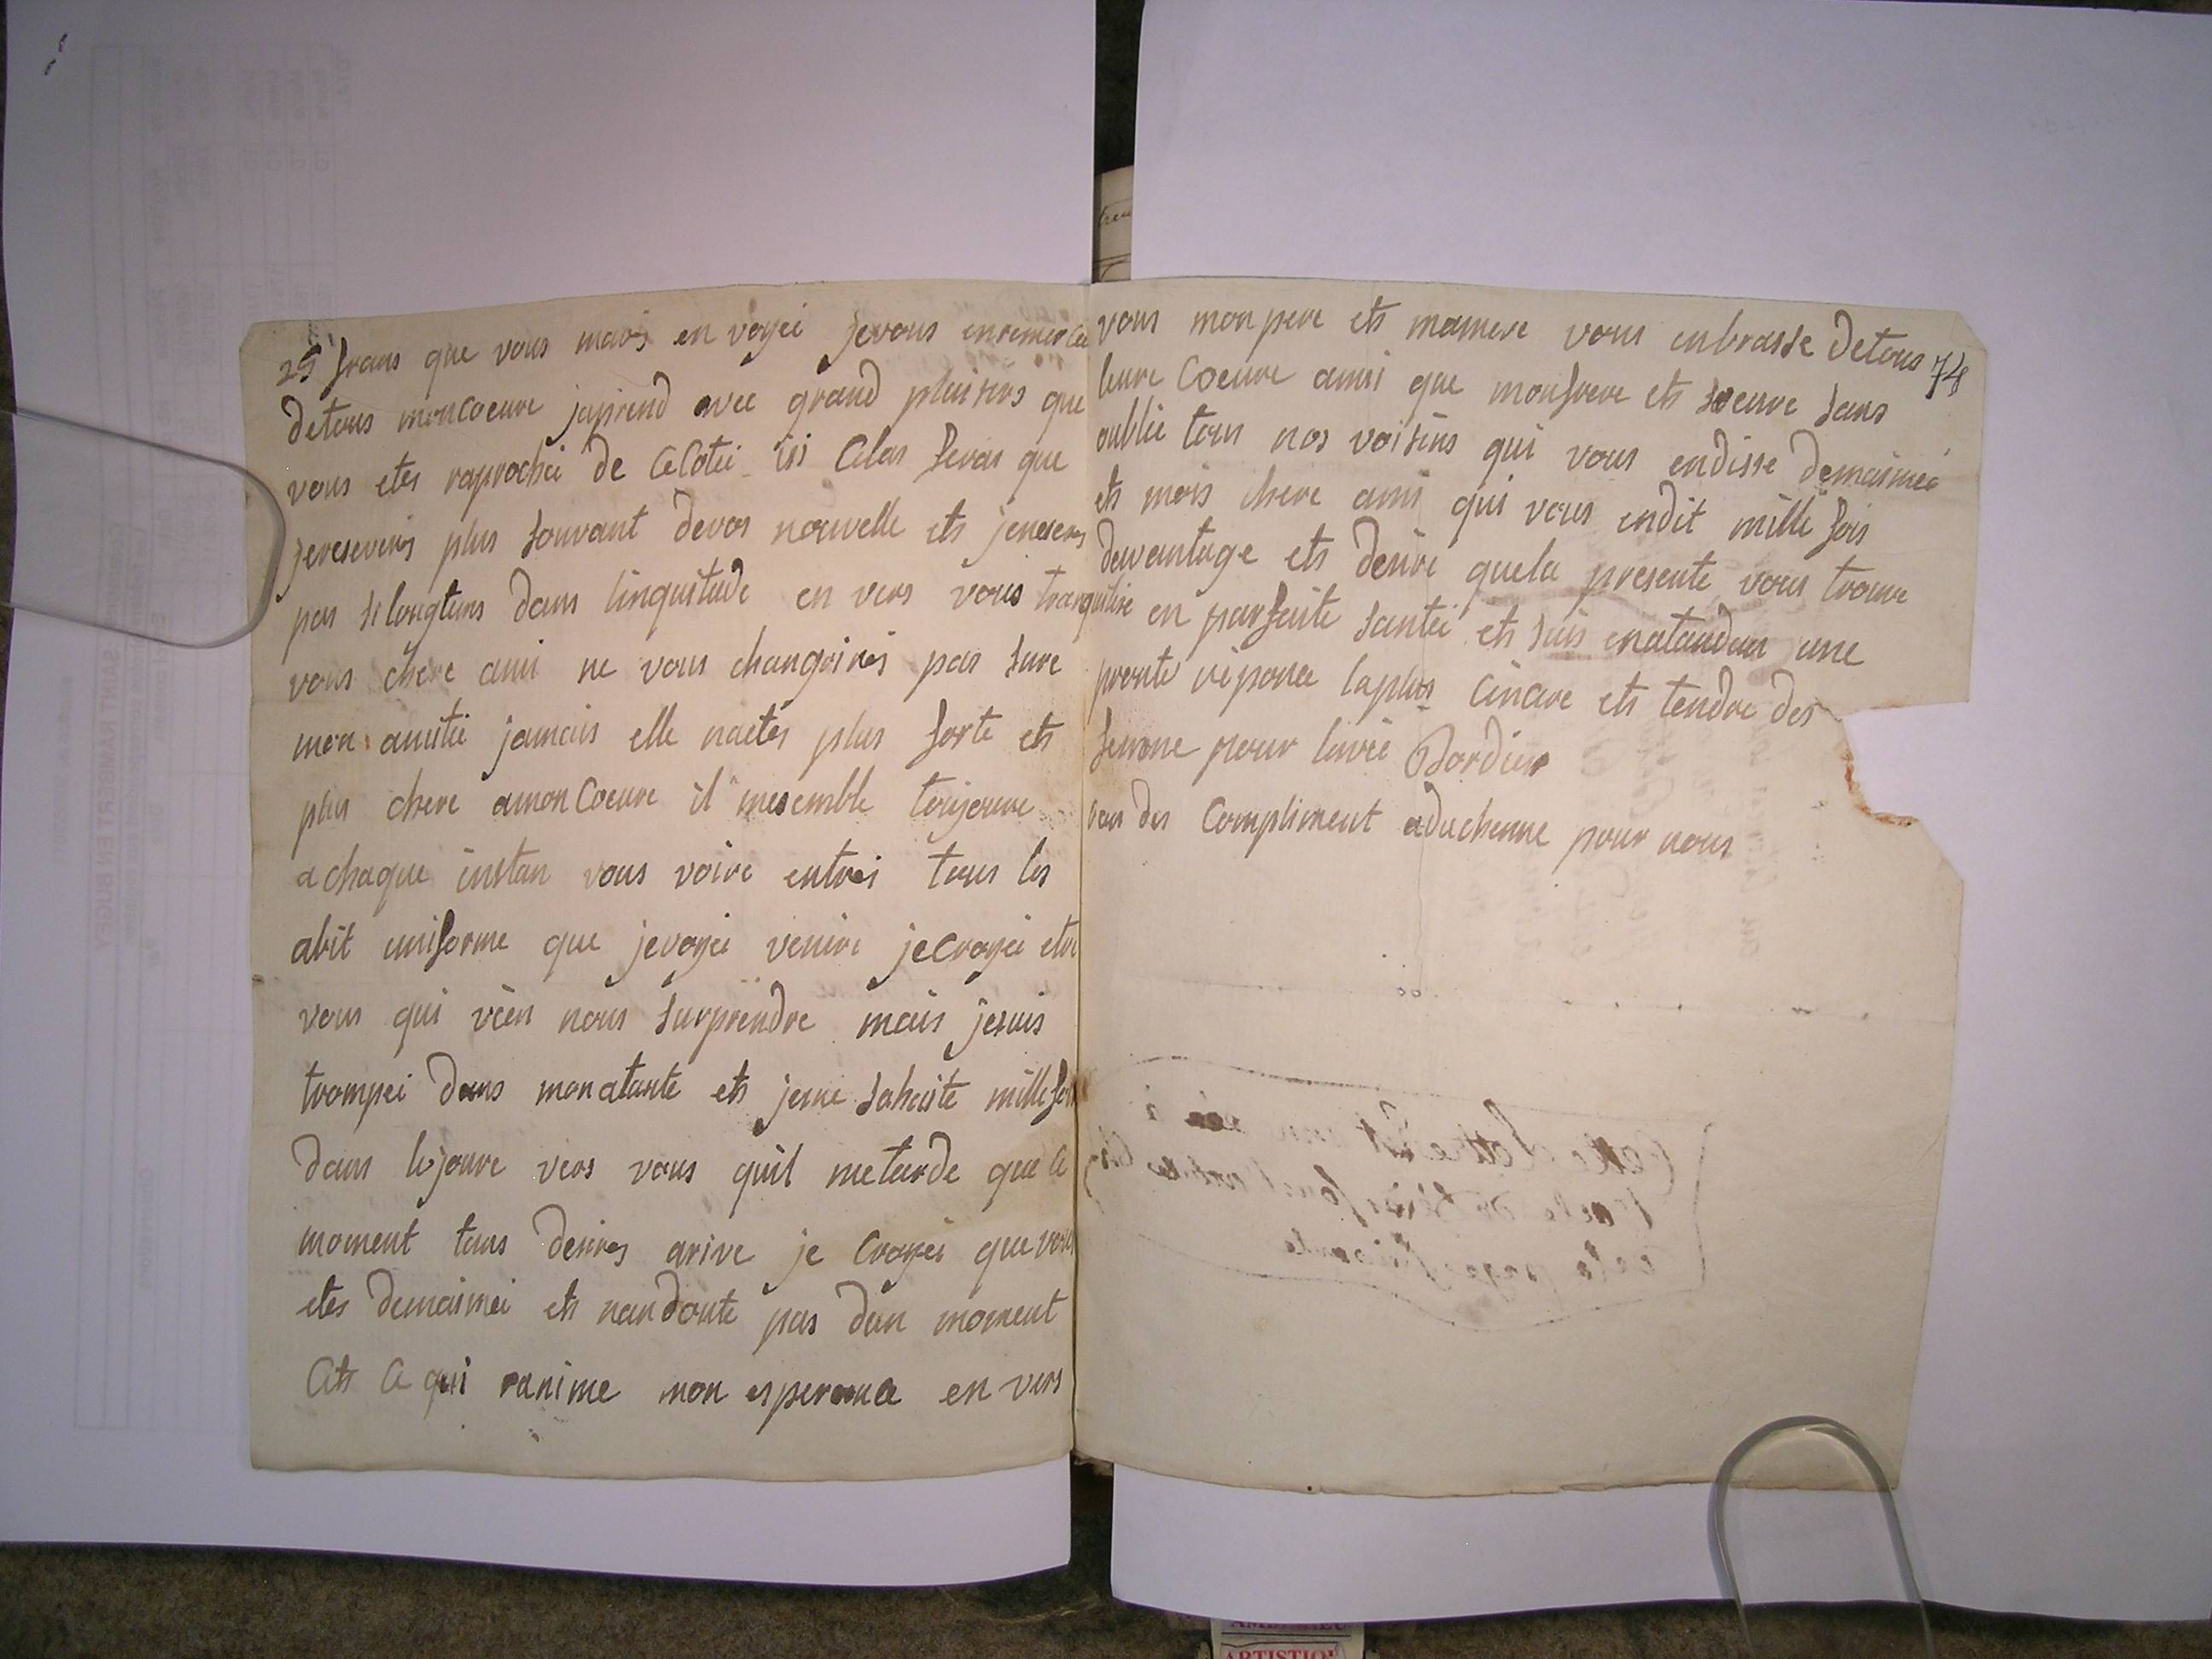 25 frans que vous mavés en voyéi jevous enremerce
detous moncoeure japrend avec grand plaisirs que
vous etes raprochéi de Cecotéi isi Celas feras que
jereseverés plus souvant devos nouvelle ets jeneseres
pas si longtems dans linquitude en vers vous tranquilise
vous chere ami ne vous changrinés pas sure
mon amitié jamais elle naetés plus forte ets
plus chere amoncoeure il mesemble toujoure
a chaque instan vous voire entréi tous les
abit uniforme que jevoyéi venire jecroyéi etre
vous qui vien nous surprendre mais jesuis
trompéi dans monatante ets jeme sahaite millefois
dans lejoure vers vous quil metarde que ce
moment tans desirés arive je croyéi que vous
etes demaiméi ets nandoute pas dun moment
Cets ce qui ranime mon esperance en vers
74
vous mon pere ets mamere vous enbrasse detous
leure coeure ainsi que monfrere ets soeure sans
oublié tous nos voisins qui vous endisse demaimés
ets mois chere ami qui vous endit mille fois
davantage ets desire quela presente vous trouve
en parfaite santéi ets suis enatandan une
pronte réponce laplus cincere ets tendre des
femme pour lavie Bordier
bien des Compliment aduchenne pour nous